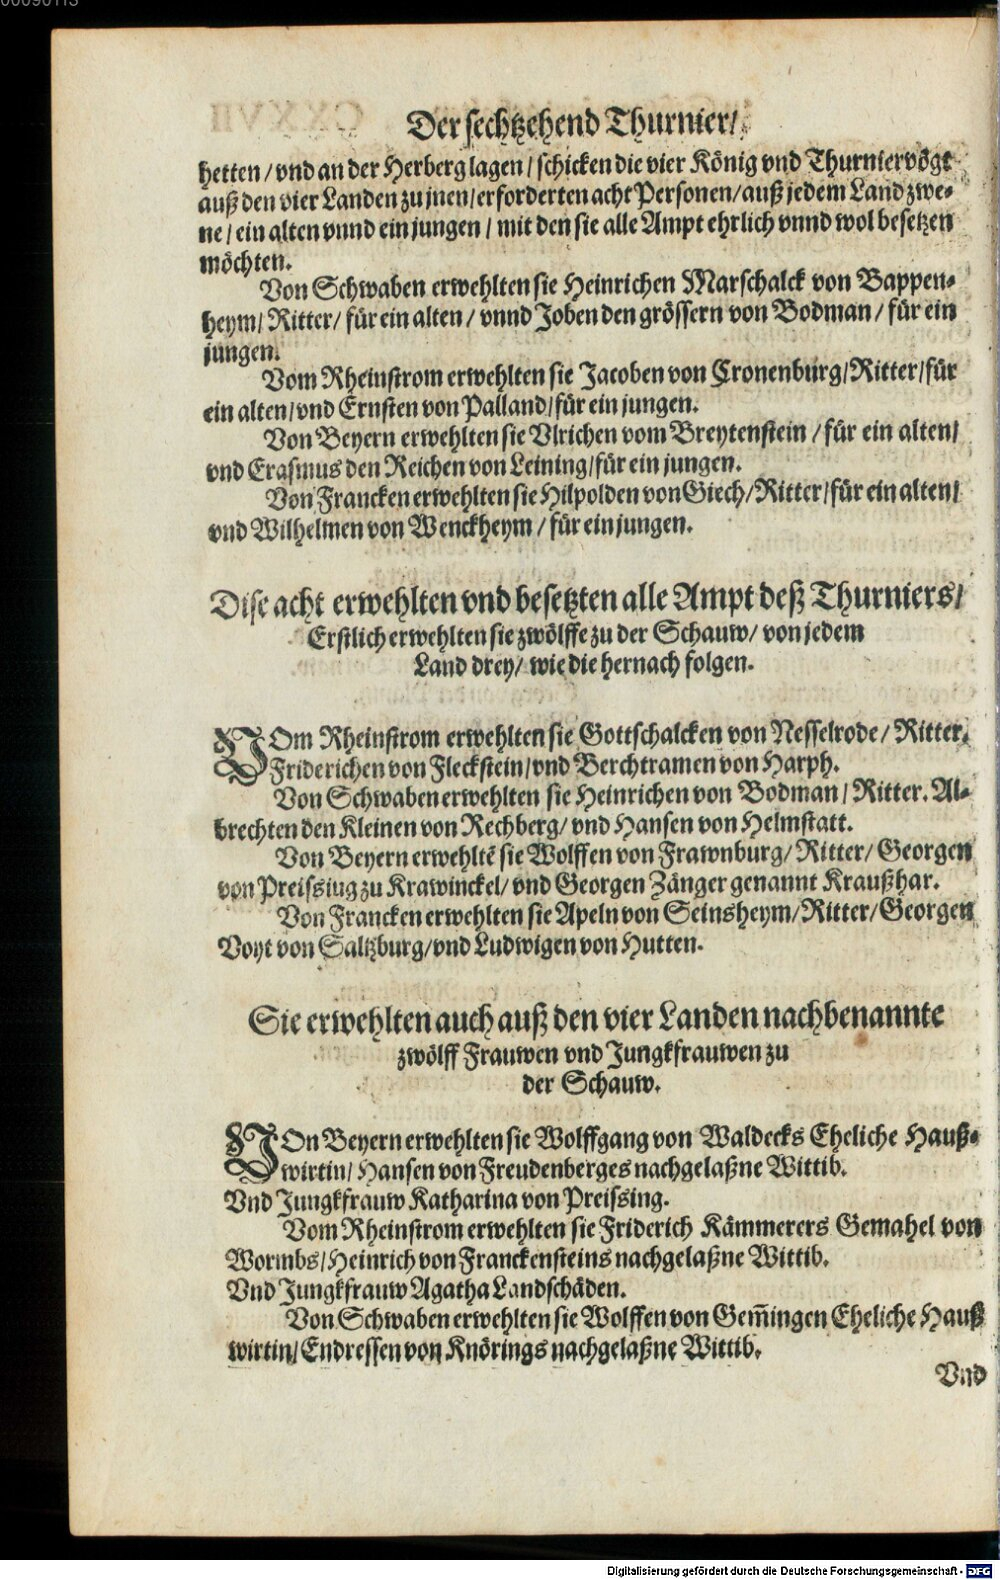 00090113
Der sechtzehend Thurnier/
hetten / vnd an der Herberg lagen / schicken die vier König vnd Thurniervögt
auß den vier Landen zu jnen/ erforderten acht Personen/ auß jedem Land zwe-
ne / ein alten vnnd ein jungen / mit den sie alle Ampt ehrlich vnnd wol besetzen
möchten.
Von Schwaben erwehlten sie Heinrichen Marschalck von Bappen-
heym/ Ritter/ für ein alten / vnnd Joben den grössern von Bodman / für ein
jungen.
Vom Rheinstrom erwehlten sie Jacoben von Cronenburg/ Ritter/ für
ein alten/ vnd Ernsten von Palland/ für ein jungen.
Von Beyern erwehlten sie Vlrichen vom Breytenstein / für ein alten/
vnd Erasmus den Reichen von Leining/ für ein jungen.
Von Francken erwehlten sie Hilpolden von Giech/ Ritter/ für ein alten/
vnd Wilhelmen von Wenckheym / für ein jungen.
Dise acht erwehlten vnd besetzten alle Ampt deß Thurniers/
Erstlich erwehlten sie zwölffe zu der Schauw/ von jedem
Land drey/ wie die hernach folgen.
VOm Rheinstrom erwehlten sie Gottschalcken von Nesselrode/ Ritter.
Friderichen von Fleckstein/ vnd Berchtramen von Harph.
Von Schwaben erwehlten sie Heinrichen von Bodman / Ritter. Al-
brechten den Kleinen von Rechberg/ vnd Hansen von Helmstatt.
Von Beyern erwehltē sie Wolffen von Frawnburg/ Ritter/ Georgen
von Preissiug zu Krawinckel/ vnd Georgen Zänger genannt Kraußhar.
Von Francken erwehlten sie Apeln von Seinsheym/ Ritter/ Georgen
Voyt von Saltzburg/ vnd Ludwigen von Hutten.
Sie erwehlten auch auß den vier Landen nachbenannte
zwölff Frauwen vnd Jungkfrauwen zu
der Schauw.
VOn Beyern erwehlten sie Wolffgang von Waldecks Eheliche Hauß-
wirtin/ Hansen von Freudenberges nachgelaßne Wittib.
Vnd Jungkfrauw Katharina von Preissing.
Vom Rheinstrom erwehlten sie Friderich Kämmerers Gemahel von
Wormbs/ Heinrich von Franckensteins nachgelaßne Wittib.
Vnd Jungkfrauw Agatha Landschäden.
Von Schwaben erwehlten sie Wolffen von Gem̄ingen Eheliche Hauß
wirtin/ Endressen von Knörings nachgelaßne Wittib.
Vnd
Digitalisierung gefördert durch die Deutsche Forschungsgemeinschaft - DFG